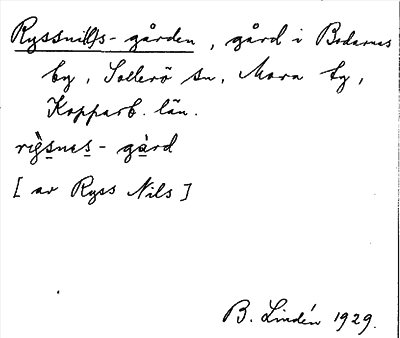 Ryssnil(l)s-gården, gård i Bodarnas
by, Sollerö sn, Mora tg,
Kopparb. län.
rìg̀s̲nes̲-gård
[ av Ryss Nils ]
B. Lindén 1929.